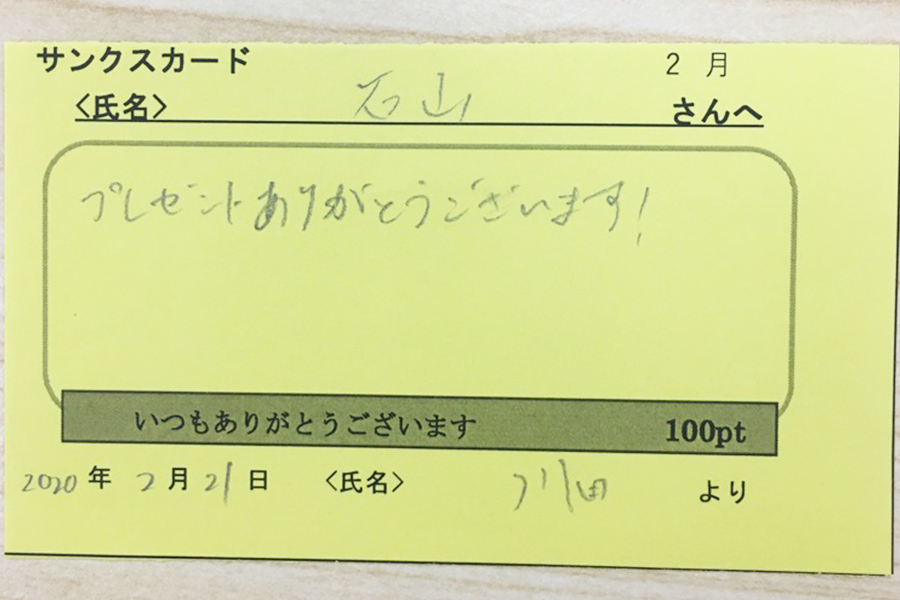 サンクスカード 2 月
〈氏名〉 石山 さんへ
プレゼントありがとうございます!
いつもありがとうございます 100pt
2020 年 2 月 21 日 〈氏名〉 川田 より